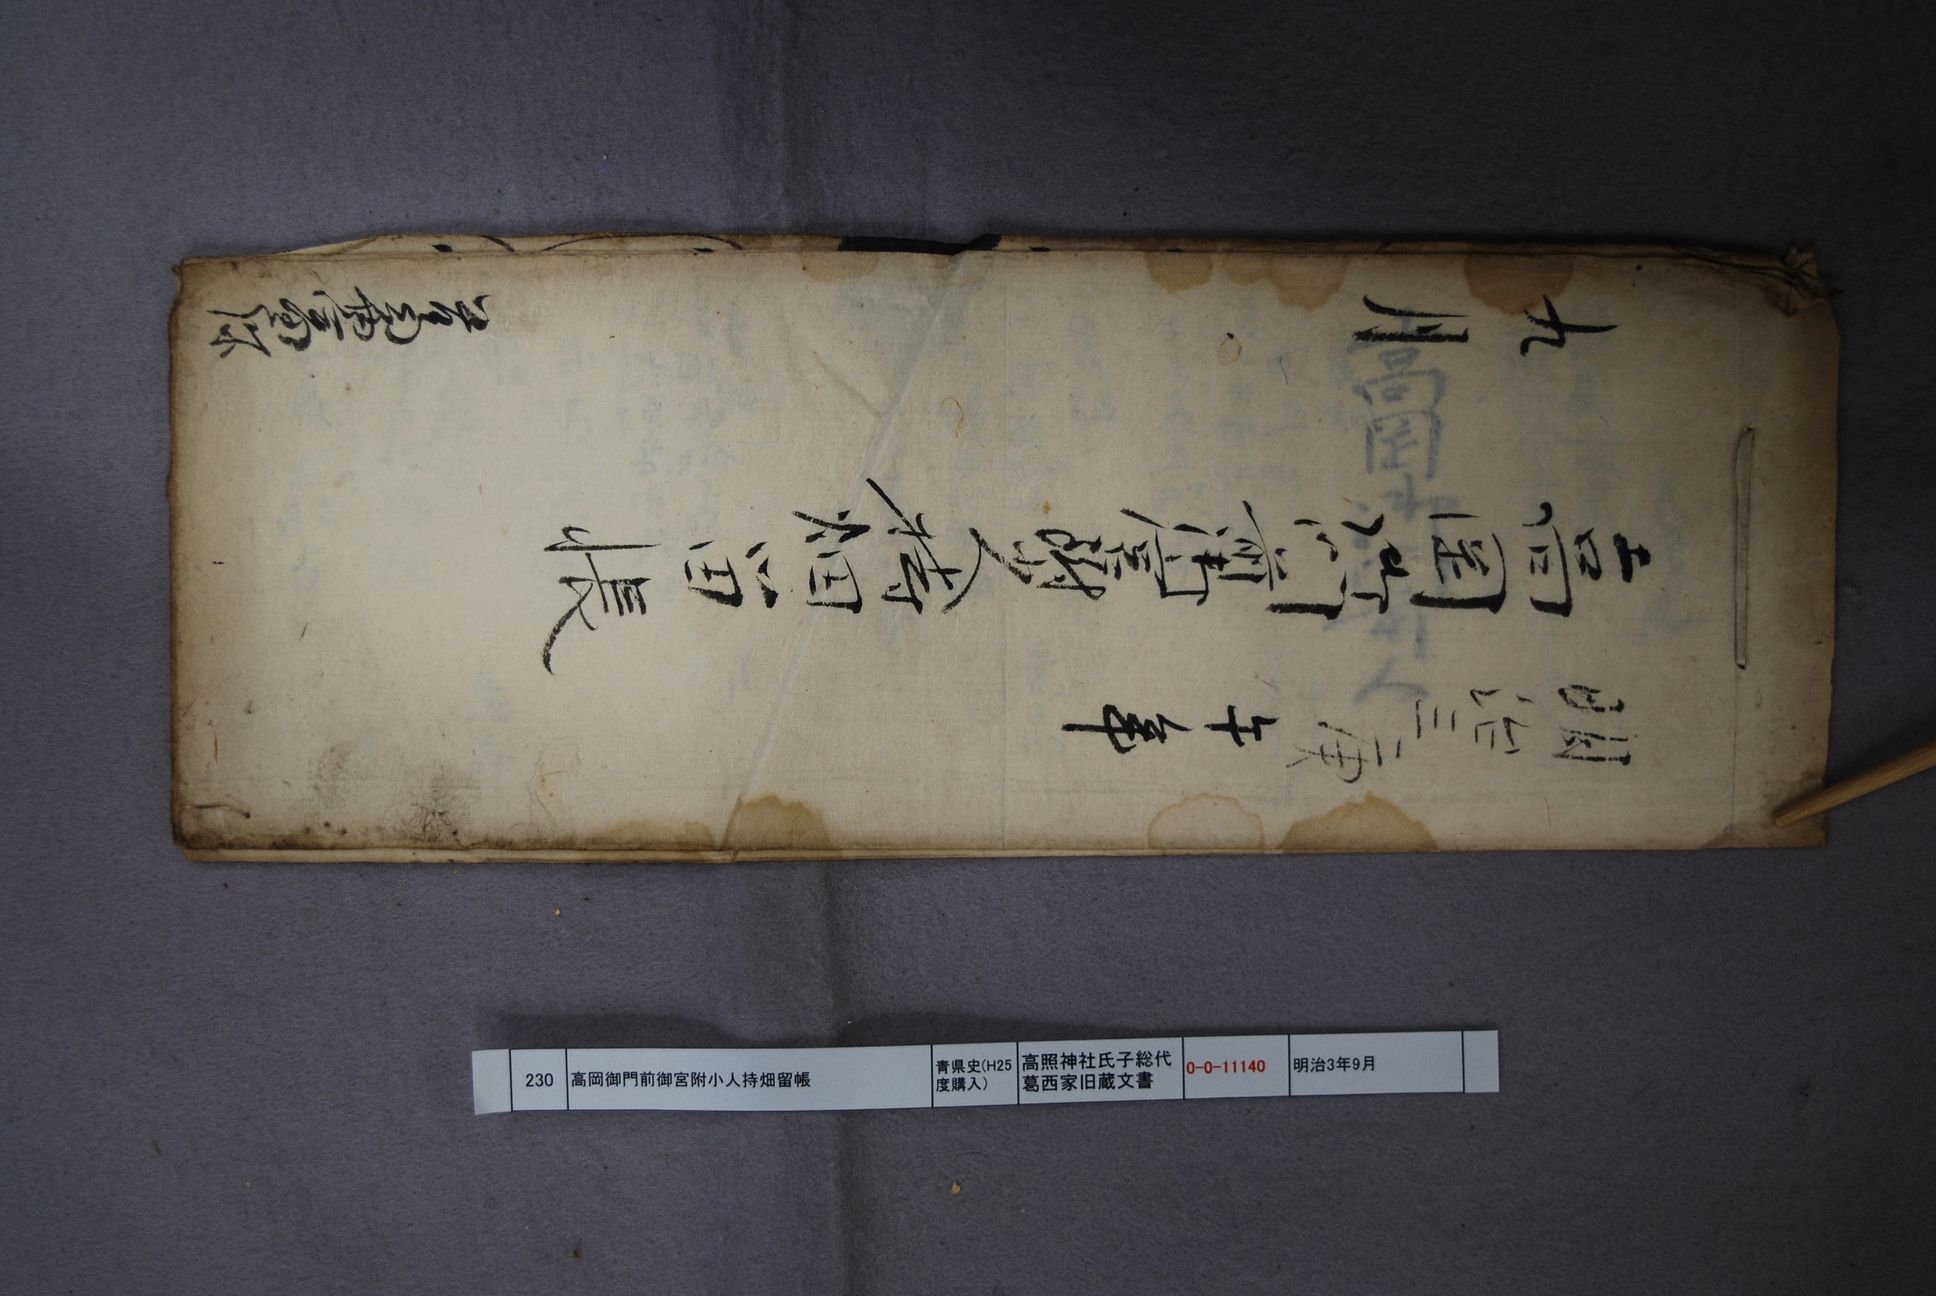 明治三庚午年
高岡御門前御宮附小人持畑留帳
九月
230
高岡御門前御宮附小人持畑留帳
青県史(H25
度購入)
高照神社氏子総代
葛西家旧蔵文書
0-0-11140
明治3年9月